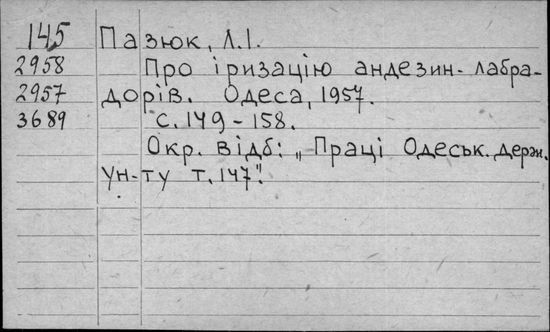 145 Пазюк, Л.І.
2958 Про іризацію андезин-лабра-
2957 дорів. Одеса, 1957.
3689 с. 149-158.
Окр. відб: „Праці Одеськ. держ.
ун-ту т.147".